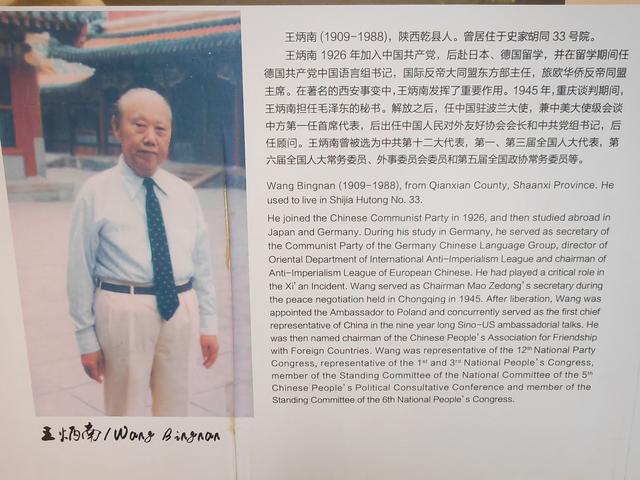 王炳南 (1909-1988)，陕西乾县人。曾居住于史家胡同 33 号院。
王炳南 1926 年加入中国共产党，后赴日本、德国留学，并在留学期间任
德国共产党中国语言组书记，国际反帝大同盟东方部主任，旅欧华侨反帝同盟
主席。在著名的西安事变中，王炳南发挥了重要作用。1945 年，重庆谈判期间，
王炳南担任毛泽东的秘书。解放之后，任中国驻波兰大使，兼中美大使级会谈
中方第一任首席代表，后出任中国人民对外友好协会会长和中共党组书记，后
任顾问。王炳南曾被选为中共第十二大代表，第一、第三届全国人大代表，第
六届全国人大常务委员、外事委员会委员和第五届全国政协常务委员等。
Wang Bingnan (1909-1988), from Qianxian County, Shaanxi Province. He
used to live in Shijia Hutong No. 33.
He joined the Chinese Communist Party in 1926, and then studied abroad in
Japan and Germany. During his study in Germany, he served as secretary of
the Communist Party of the Germany Chinese Language Group, director of
Oriental Department of International Anti-Imperialism League and chairman of
Anti-Imperialism League of European Chinese. He had played a critical role in
the Xi'an Incident. Wang served as Chairman Mao Zedong's secretary during
the peace negotiation held in Chongqing in 1945. After liberation, Wang was
appointed the Ambassador to Poland and concurrently served as the first chief
representative of China in the nine year long Sino-US ambassadorial talks. He
was then named chairman of the Chinese People's Association for Friendship
with Foreign Countries. Wang was representative of the 12th National Party
Congress, representative of the 1st and 3rd National People's Congress,
member of the Standing Committee of the National Committee of the 5th
Chinese People's Political Consultative Conference and member of the
Standing Committee of the 6th National People's Congress.
王炳南/Wang Bingnan